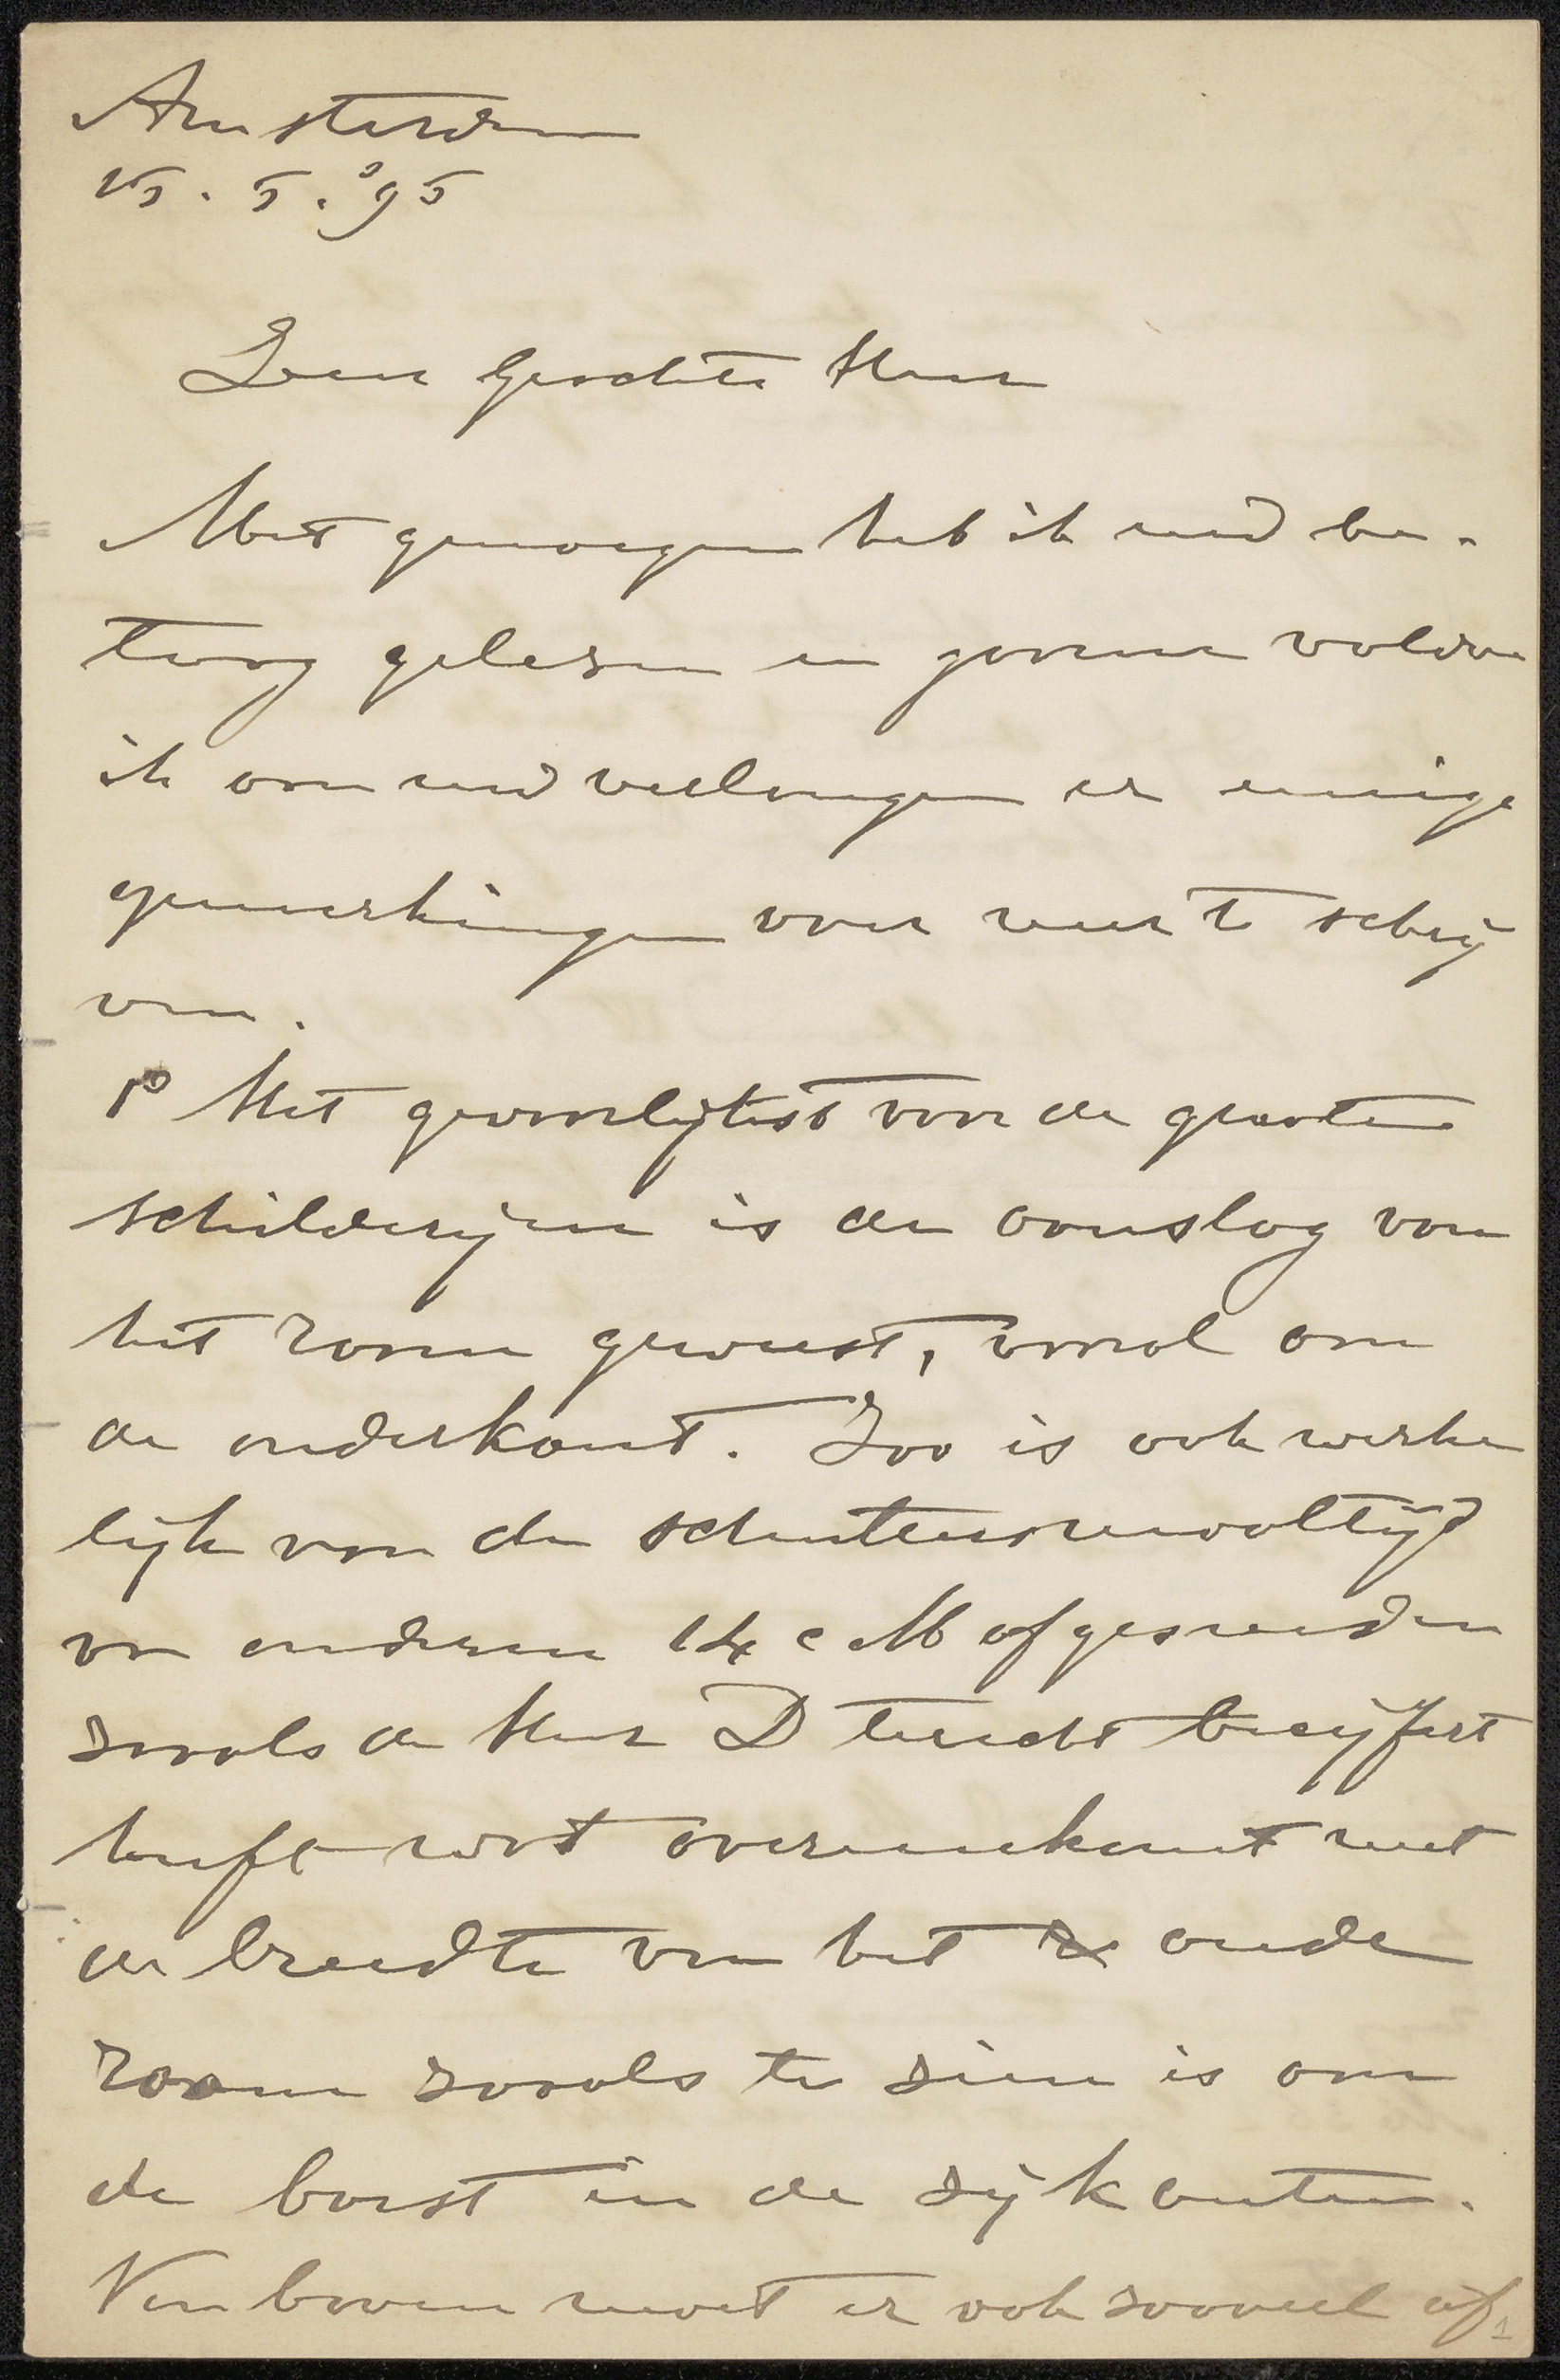 Amsterdam
15.5.'95
Zeer Geachte Heer
Met genoegen heb ik uwd be-
toog gelezen en gaarne voldoe
ik aan uwd verlangen er eenige
opmerkingen over neer te schrij
ven.
1° Het gevaarlijkst voor de groote
schilderijen is de aanslag van
het raam geweest, vooral aan
de onderkant. Zoo is ook werke
lijk van de schuttersmaaltijd
van onderen 14 cM afgesneden
zooals de Heer D terecht becijfert
heeft wat overeenkomt met
de breedte van het oude
raam zooals te zien is aan
de barst in de zijkanten.
Van boven moet er ook zooveel af
1